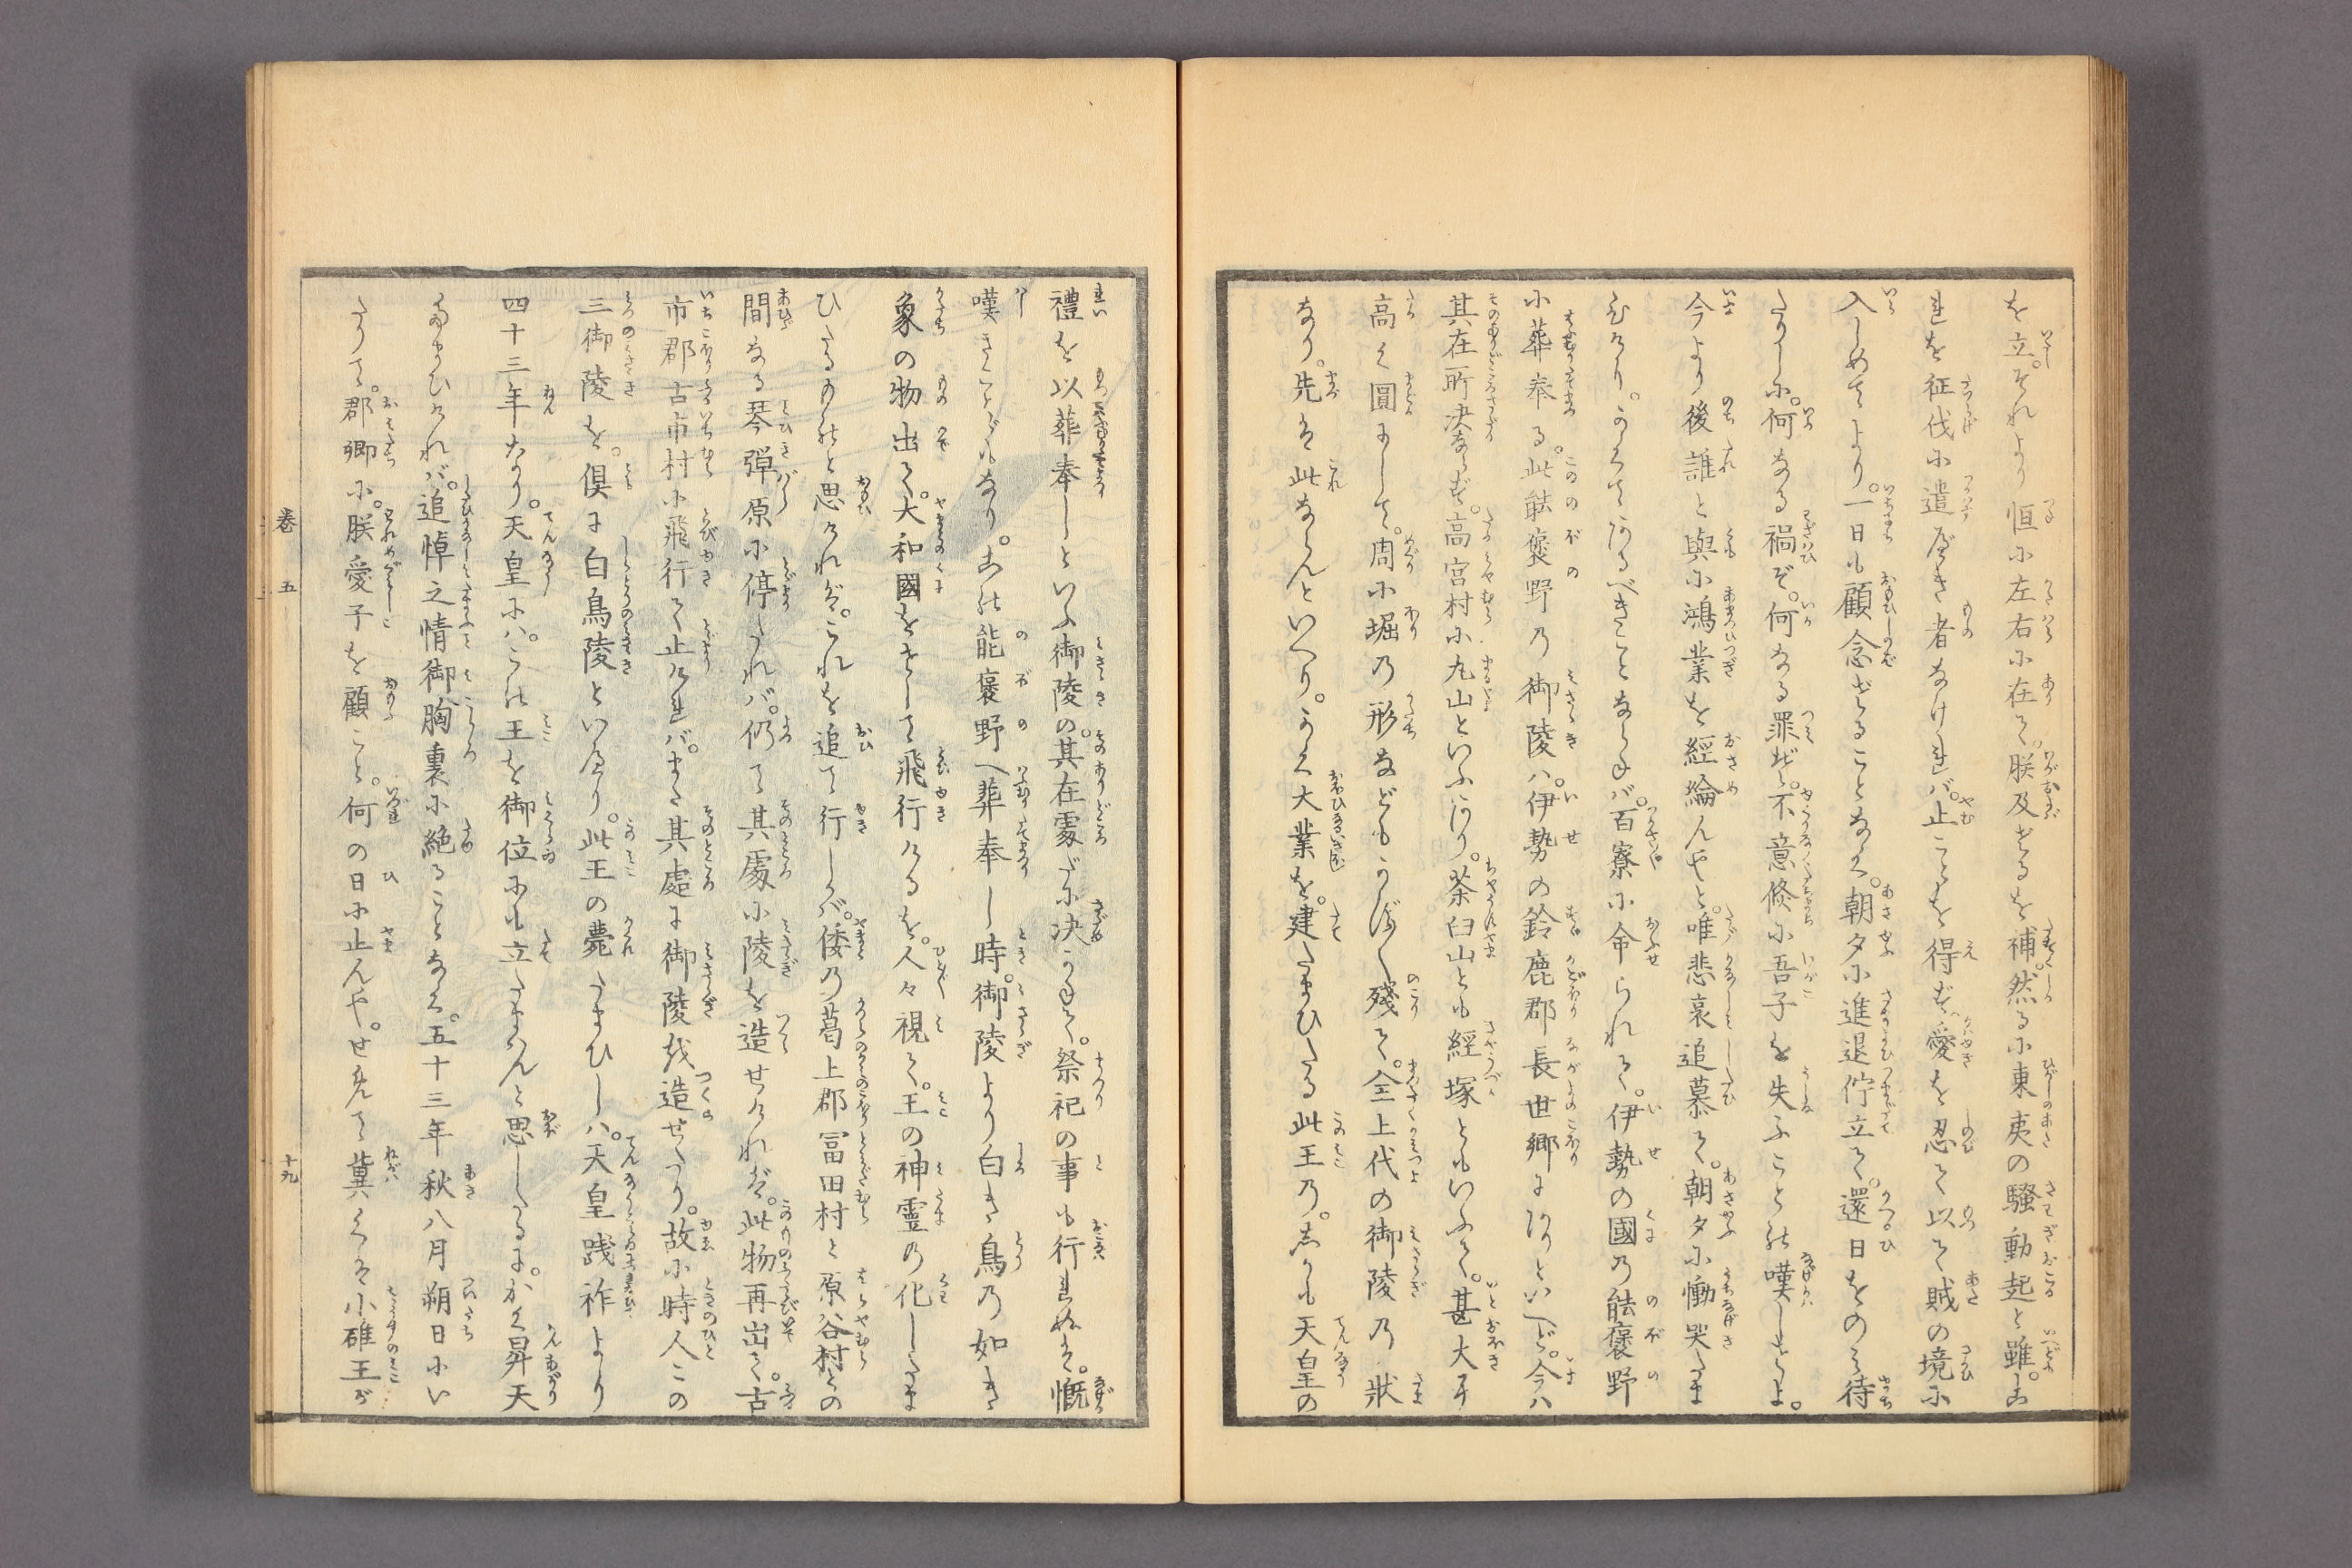 を立。それより恒に左右に在て。朕及ざるを補。然るに東夷の騒動起と雖。こ
れを征伐に遣べき者なければ。止ことを得ず。愛を忍て以て賊の境に
入しめてより。一日も顧念ざることなく。朝夕に進退佇立て。還日をのみ待
たりしに。何なる禍ぞ。何なる罪ぞ。不意倏に吾子を失ふことの嘆しさよ。
今より後誰と與に鴻業を經綸んやと。唯悲哀追慕て。朝夕に慟哭たま
ひけり。かくてあるべきことならねば。百寮に命られて。伊勢の國の能褒野
に葬奉る。此能褒野の御陵は。伊勢の鈴鹿郡長世郷にありといへど。今は
其在所決ならず。高宮村に丸山といふあり。茶臼山とも經塚ともいふて。甚大に
高く圓にして。周に堀の形なども かつかつ殘て。全上代の御陵の状
なり。先は此ならんといへり。かく大業を。建たまひたる此王の。しかも天皇の
禮を以葬奉しといふ御陵の。其在處だに決かねて。祭祀の事も行れぬは。慨
嘆きことどもなり。この能褒野へ葬奉し時。御陵より白き鳥の如き
象の物出て。大和國をさして飛行けるを。人々視て。王の神霊の化したま
ひたるものと思ければ。これを追て行しかば。倭の葛上郡冨田村と原谷村との
間なる琴弾原に停たれば。仍て其處に陵を造せければ。此物再出て。古
市郡古市村に飛行て止ければ。また其處に御陵を造せたり。故に時人この
三御陵を。倶に白鳥陵といへり。此王の薨たまひしは。天皇践祚より
四十三年なり。天皇には。この王を御位にも立たまはんと思したるに。かく昇天
たまひければ。追悼之情御胸裏に絶ることなく。五十三年秋八月朔日にい
たりて。郡卿に。朕愛子を顧こと。何の日に止んや。せめて冀くは小碓王が
巻 五 十九